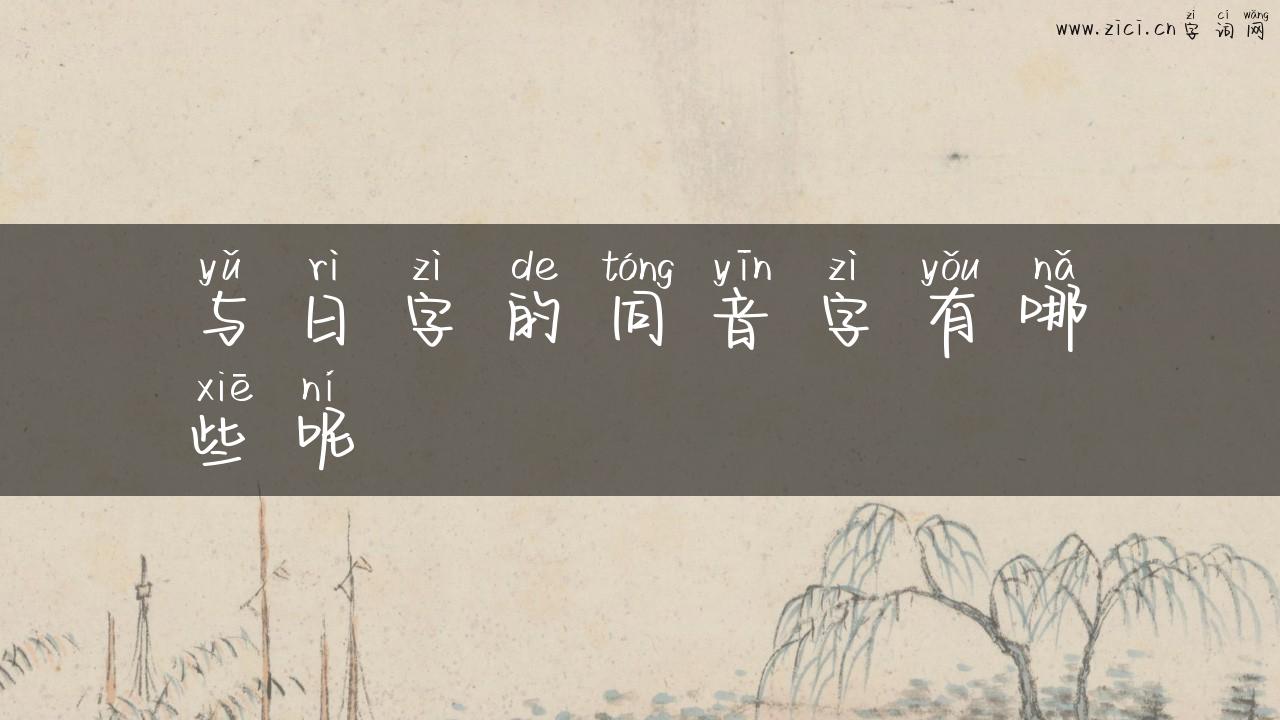 zì cí wǎng
www.zici.cn 字词网
yǔ rì zì de tóng yīn zì yǒu nǎ
与日字的同音字有哪
xiē ní
些呢